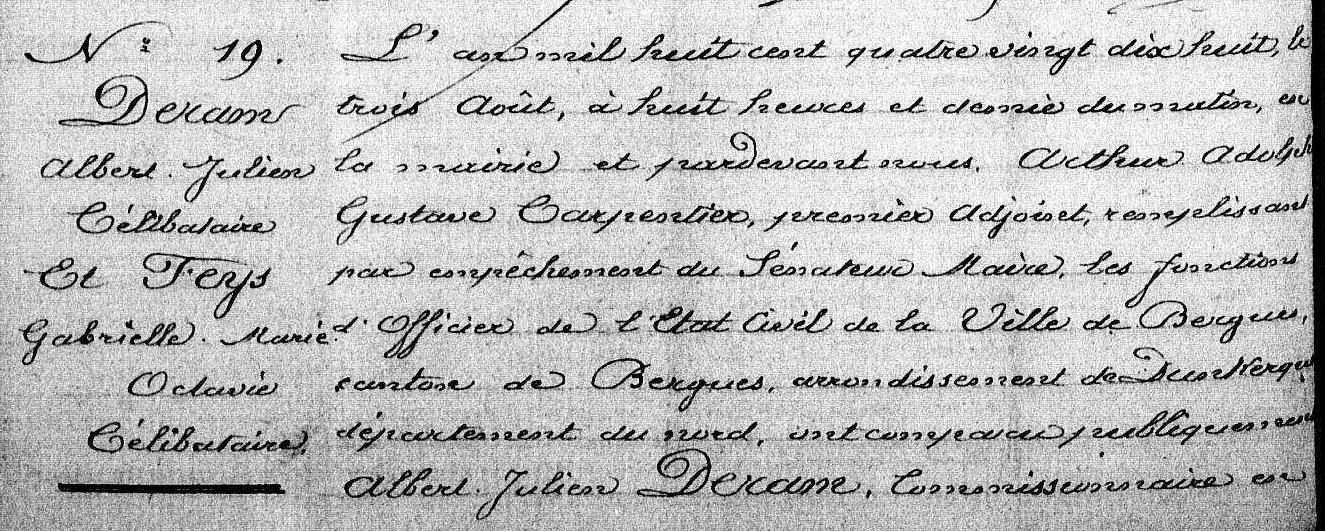 N° 19.
Deram
Albert. Julien
Célibataire
Et Feys
Gabrielle. Marie.
Octavie
Célibataire.
L'an mil huit cent quatre vingt dix huit, le
trois Août, à huit heures et demie du matin, en
la mairie et pardevant nous. Arthur Adolphe
Gustave Carpentier, premier Adjoint, remplissant
par empêchement du Sénateur Maire, les fonctions
d'Officier de l'Etat Civil de la Ville de Bergues,
canton de Bergues, arrondissement de Dunkerque
département du nord, ont comparu publiquement
Albert. Julien Deram, Commissionnaire en